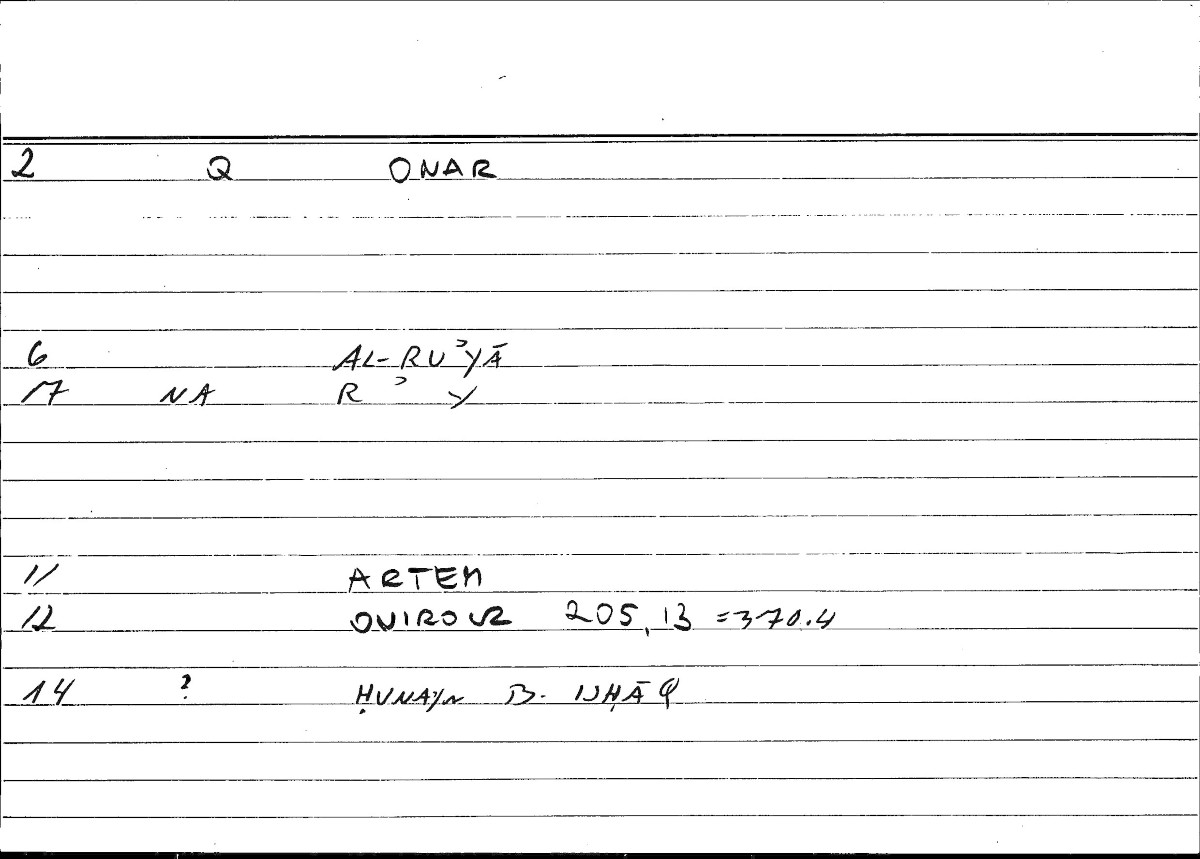 2 Q ONAR
6 AL-RUʾYĀ
17 NA R ʾ Y
11 ARTEM
12 ONIROUR 205,13 =370.4
14 ? ḤUNAYN B. ISḤĀQ